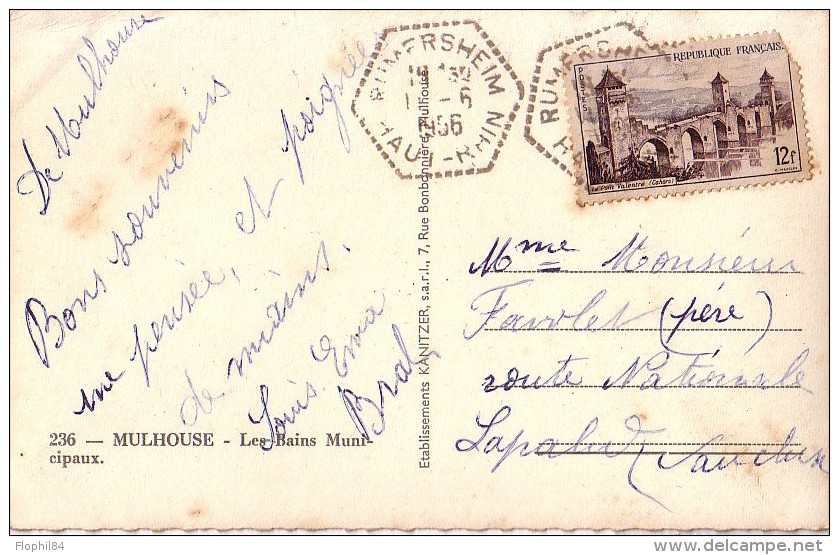 De Mulhouse
Bons souvenirs
une pensée, et poignées
de mains.
Louis Erna
236 — MULHOUSE - Les Bains Muni-
cipaux.
Etablissements KANITZER, s.a.r.l., 7, Rue Bonbonnière, Mulhouse
RUMERSHEIM
1956
HAUT-RHIN
RUMERS
REPUBLIQUE FRANÇAISE
POSTES
12f
Le Pont Valentré (Cahors)
Mme Monsieur
Favolet (père)
route Nationale
Lapalud Vaucluse
Flophil84